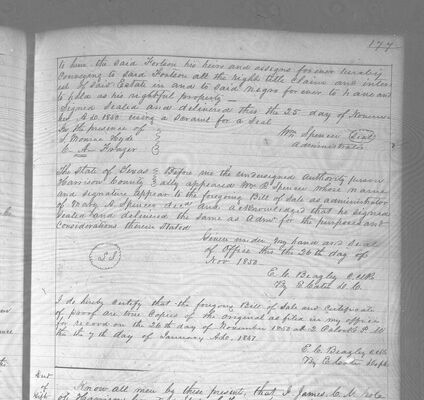 177
to him the said Forteon his heirs and assigns forever hereby
conveying to said Forteon all the right title claim and inter
est of said Estate in and to said Negro for ever to have and
to hold as his rightful property —
Signed Sealed and delivered this the 25 day of Novem
ber A.D. 1850 using a scrawl for a Seal
In the presence of
J. Monroe Hyde
C. A. Frazer
Wm Spencer Seal
Administrator
The State of Texas
Harrison County
Before me the undersigned Authority person
ally appeared Wm R. Spencer whose name
and signature appear to the foregoing Bill of Sale as administrator
of Mary A. Spencer decd and acknowledged that he signed
sealed and delivered the same as Admr. for the purposes and
considerations therein stated
Given under my hand and seal
of Office this the 26th day of
Nov 1850
L.S.
E. C. Beazley
By
I do hereby certify that the foregoing Bill of Sale and Certificate
of proof are true Copies of the original as filed in my office
for record on the 26th day of November 1850 at 2 Oclock P. M
the 7th day of January A.D. 1851
E. C. Beazley
By
Know all men by these presents, that I James C. M
of Harrison